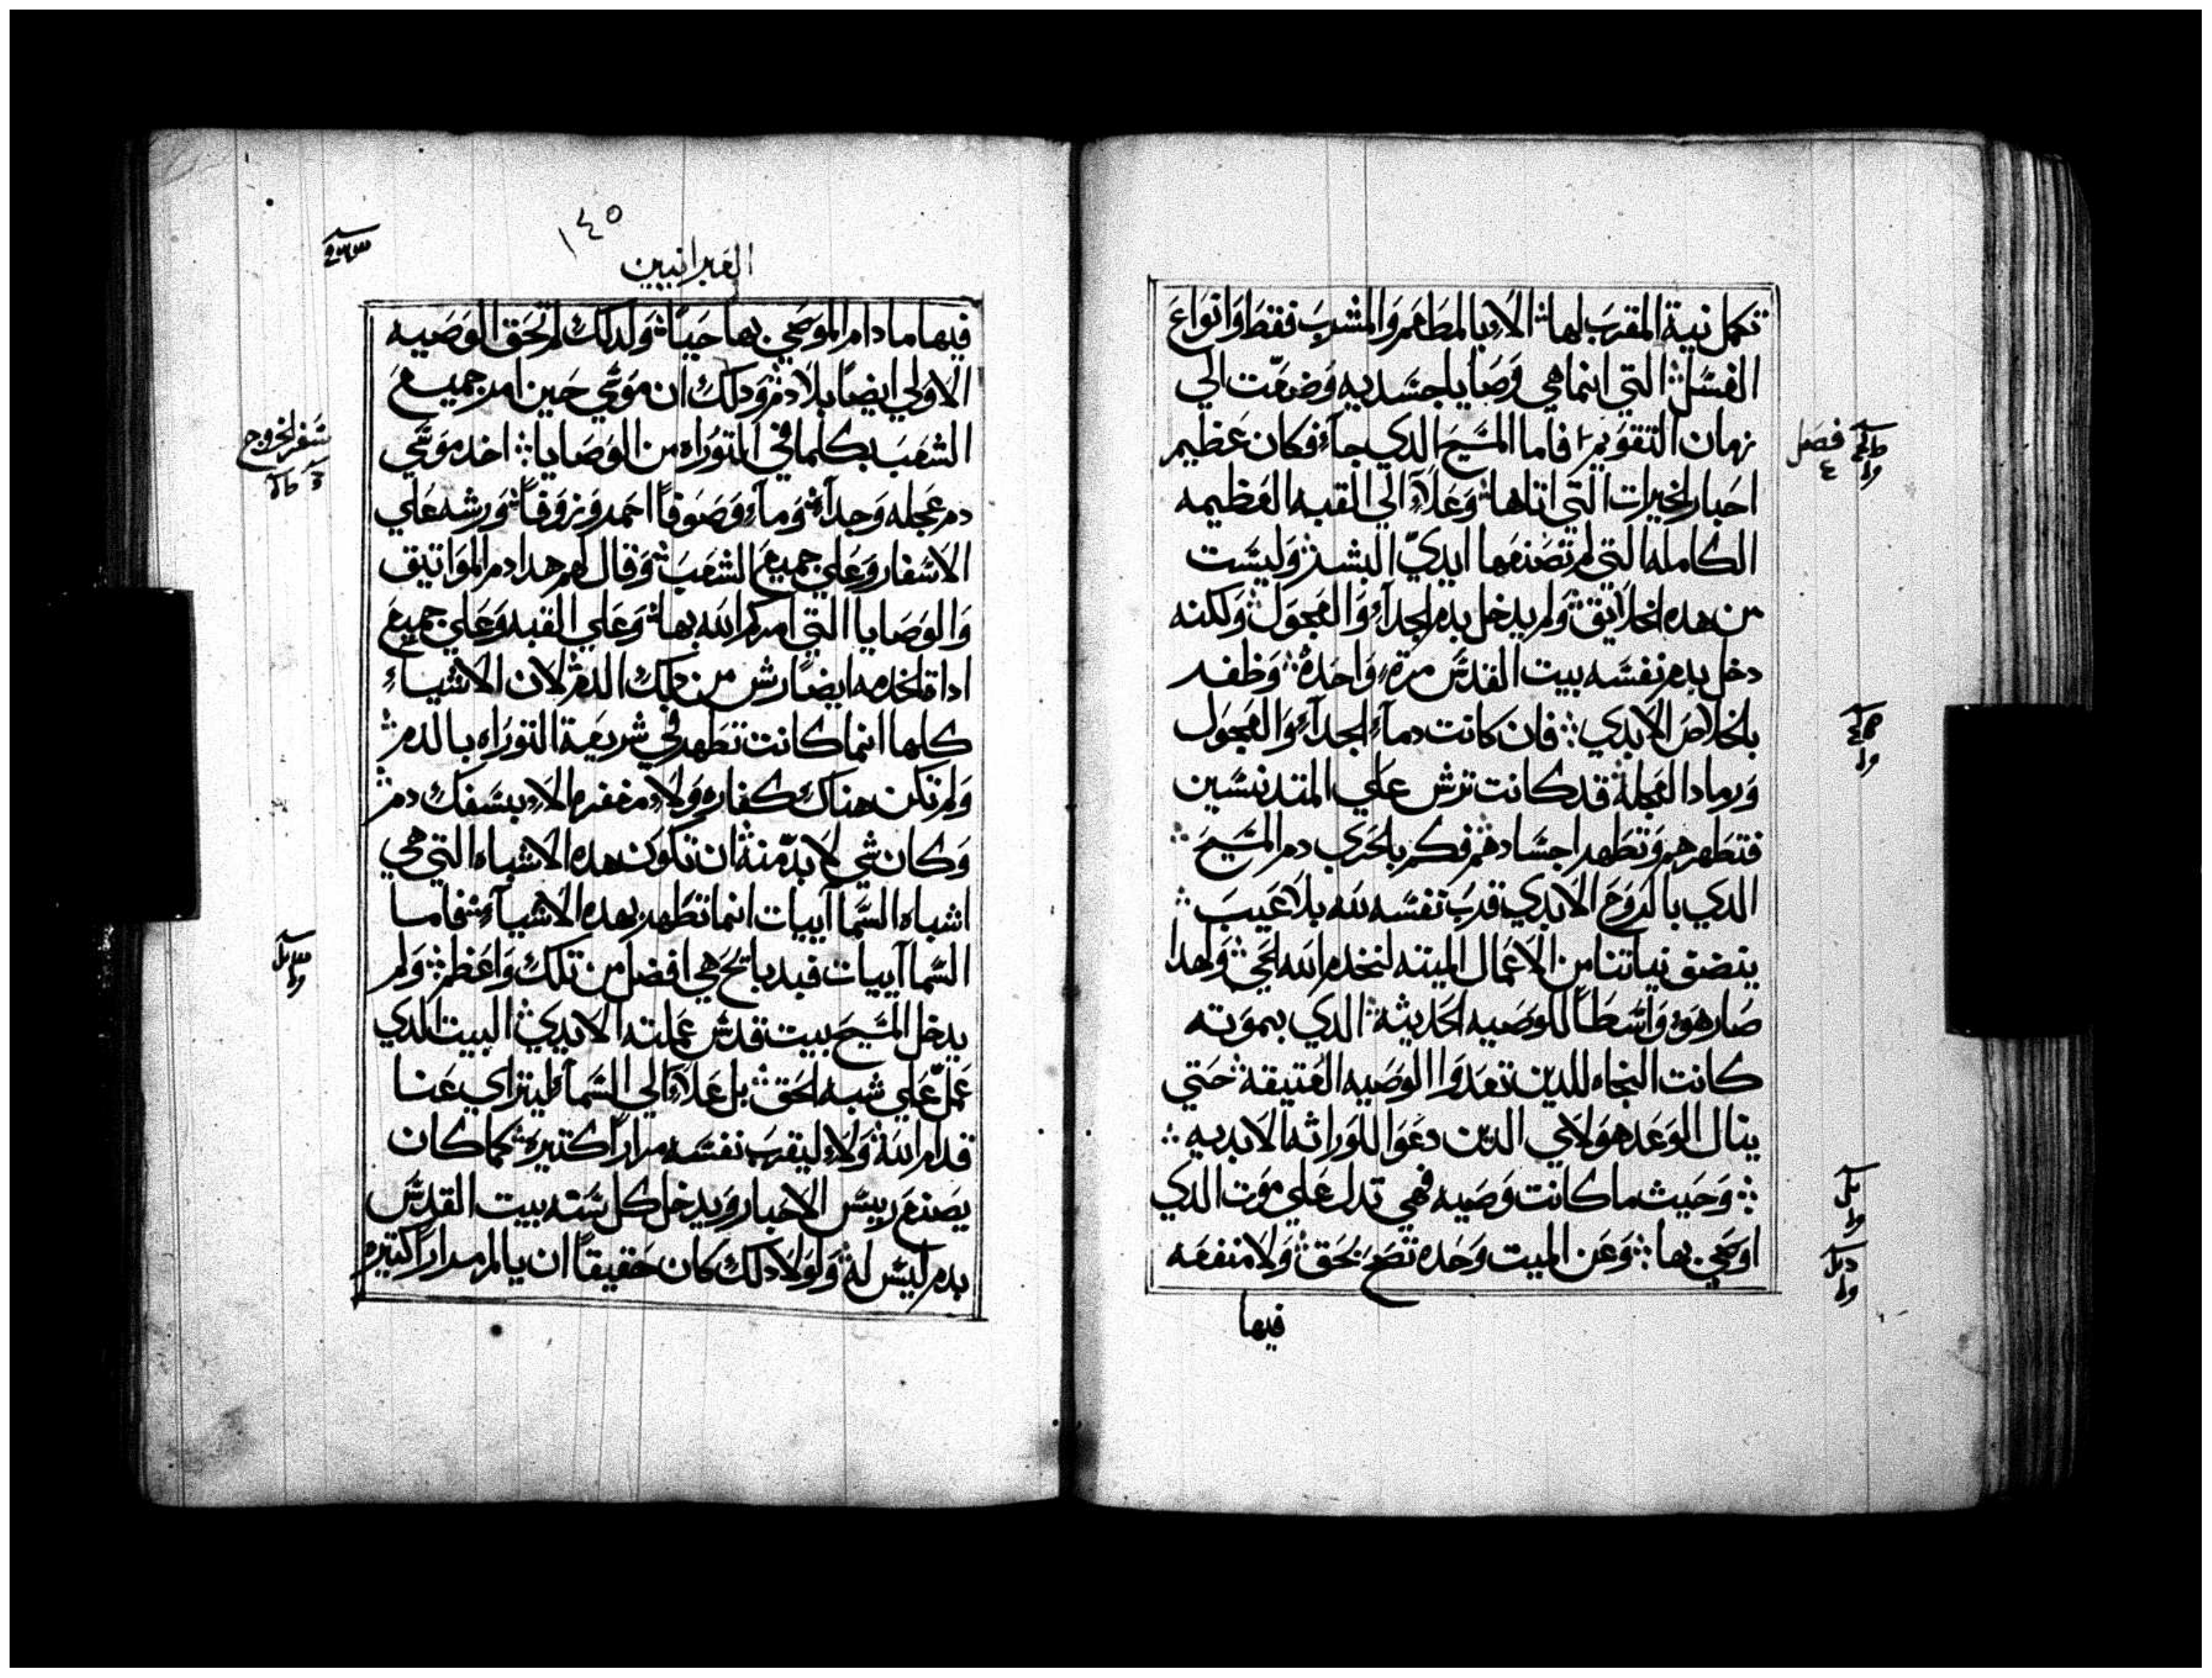 تكمل نية المقرب لها الا بالمطاعم والمشرب فقط وانواع
الغسل التي انما هي وصايا جسديه وضعت الي
زمان التقويم فاما المسيح الدي جآء فكان عظيم
فصل ٤
احبار الخيرات التي اتاها وعلآ الي القبه العظيمه
الكامله التي لم تصنعها ايدي البشر وليست
من هده الخلايق ولم يدخل بدم الجدآء والعجول ولكنه
دخل بدم نفسه بيت القدس مرة واحدة وظفر
بالخلاص الابدي فان كانت دمآء الجدآء والعجول
ورماد العجلة قد كانت ترش علي المتدنسين
فتطهرهم وتطهر اجسادهم فكم بالحري دم المسيح
الدي بالروح الابدي قرب نفسه لله بلا عيب
ينضق نياتنا من الاعمال الميته لنخدم الله الحي ولهدا
صار هو واسطاً للوصيه الحديثة الدي بموته
كانت النجاه للدين تعدوا الوصيه العتيقه حتي
ينال الوعد هولاي الدين دعوا للوراثه الابديه
وحيث ما كانت وصيه فهي تدل علي موت الدي
اوصي بها وعن الميت وحده تصح بحق ولا منفعه
فيها
١٤٥
العبرانيين
فيها ما دام الموصي بها حياً ولدلك لم تحق الوصيه
الاولي ايضاً بلا دم ودلك ان موسي حين امر جميع
الشعب بكلما في التوراه من الوصايا اخد موسي
سفر الخروج
دم عجله وجدآء ومآء وصوفاً احمر وزوفاً ورشه علي
الاسفار وعلي جميع الشعب وقال لهم هدا دم المواتيق
والوصايا التي امركم الله بها وعلي القبه وعلي جميع
اداة الخدمه ايضاً رش من دلك الدم لان الاشياء
كلها انما كانت تطهر في شريعة التوراه بالدم
ولم تكن هناك كفاره ولا مغفره الا بسفك دم
وكان شي لا بد منه ان تكون هده الاشباه التي هي
اشباه السماآييات انما تطهر بهده الاشيآء فاما
السماآييات فبدبايح هي افضل من تلك واعظم ولم
يدخل المسيح بيت قدس عملته الايدي البيت الدي
عمل علي شبه الحق بل علآ الي السمآء ليترآي عنا
قدام الله ولا ليقرب نفسه مراراً كتيرة كما كان
يصنع رييس الاحبار ويدخل كل سنه بيت القدس
بدم ليس له ولولا دلك كان حقيقاً ان يالم مراراً كتيره